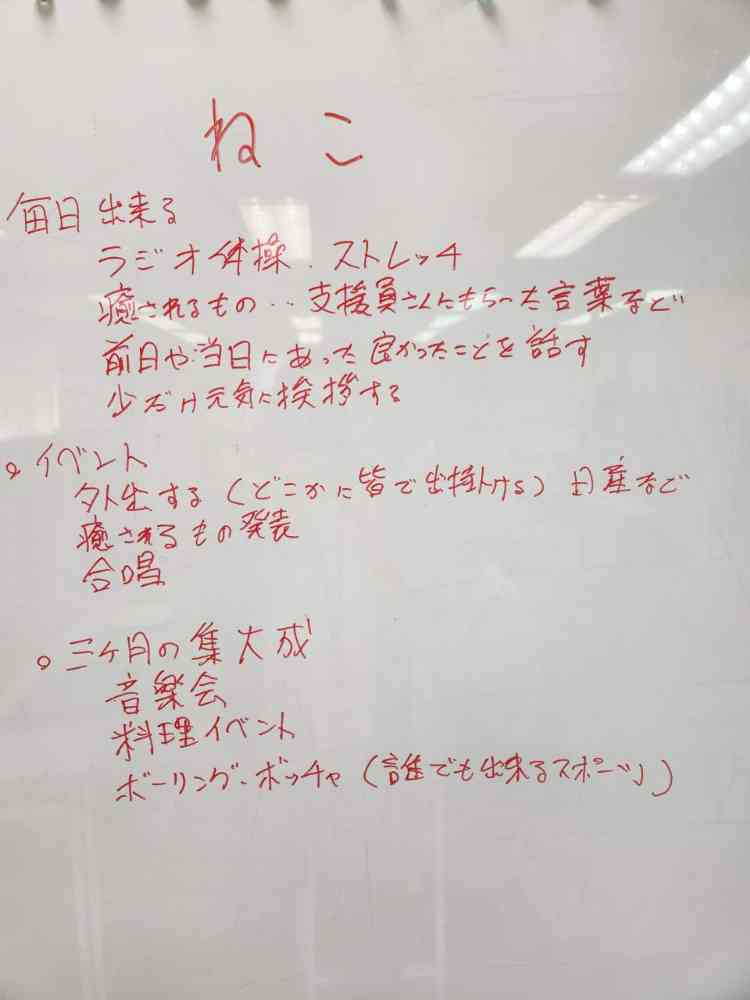 ねこ
毎日出来る
ラジオ体操、ストレッチ
癒されるもの‥支援員さんにもらった言葉など
前日や当日にあった良かったことを話す
少だけ元気に挨拶する
○ イベント
外出する（どこかに皆で出掛ける）日産など
癒されるもの発表
合唱
○ 三ヶ月の集大成
音楽会
料理イベント
ボーリング・ボッチャ（誰でも出来るスポーツ）